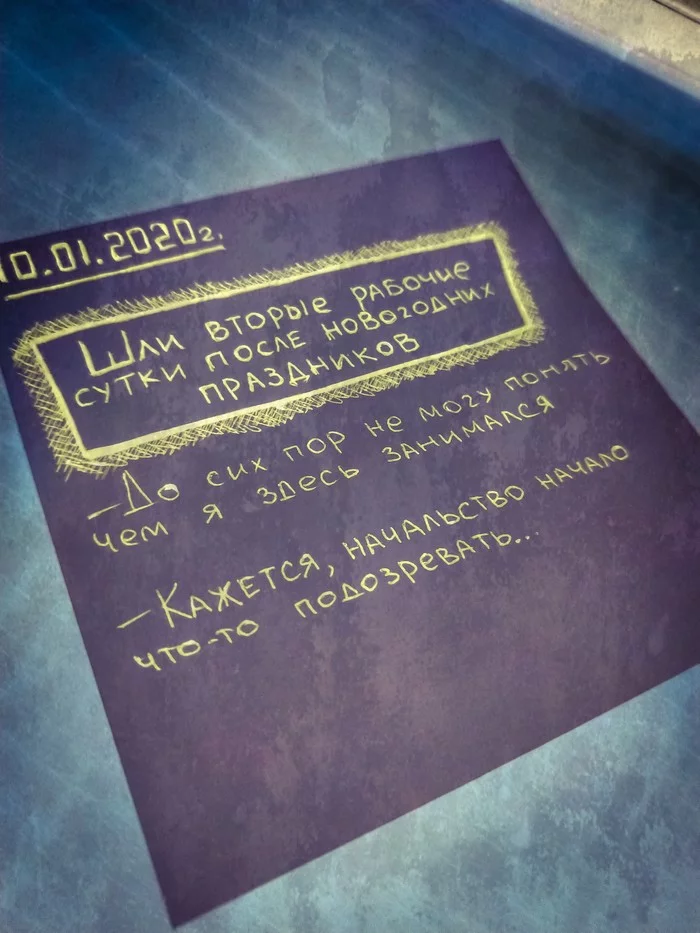 10.01.2020г.
Шли вторые рабочие
сутки после новогодних
праздников
—До сих пор не могу понять
чем я здесь занимался
—Кажется, начальство начало
что-то подозревать...